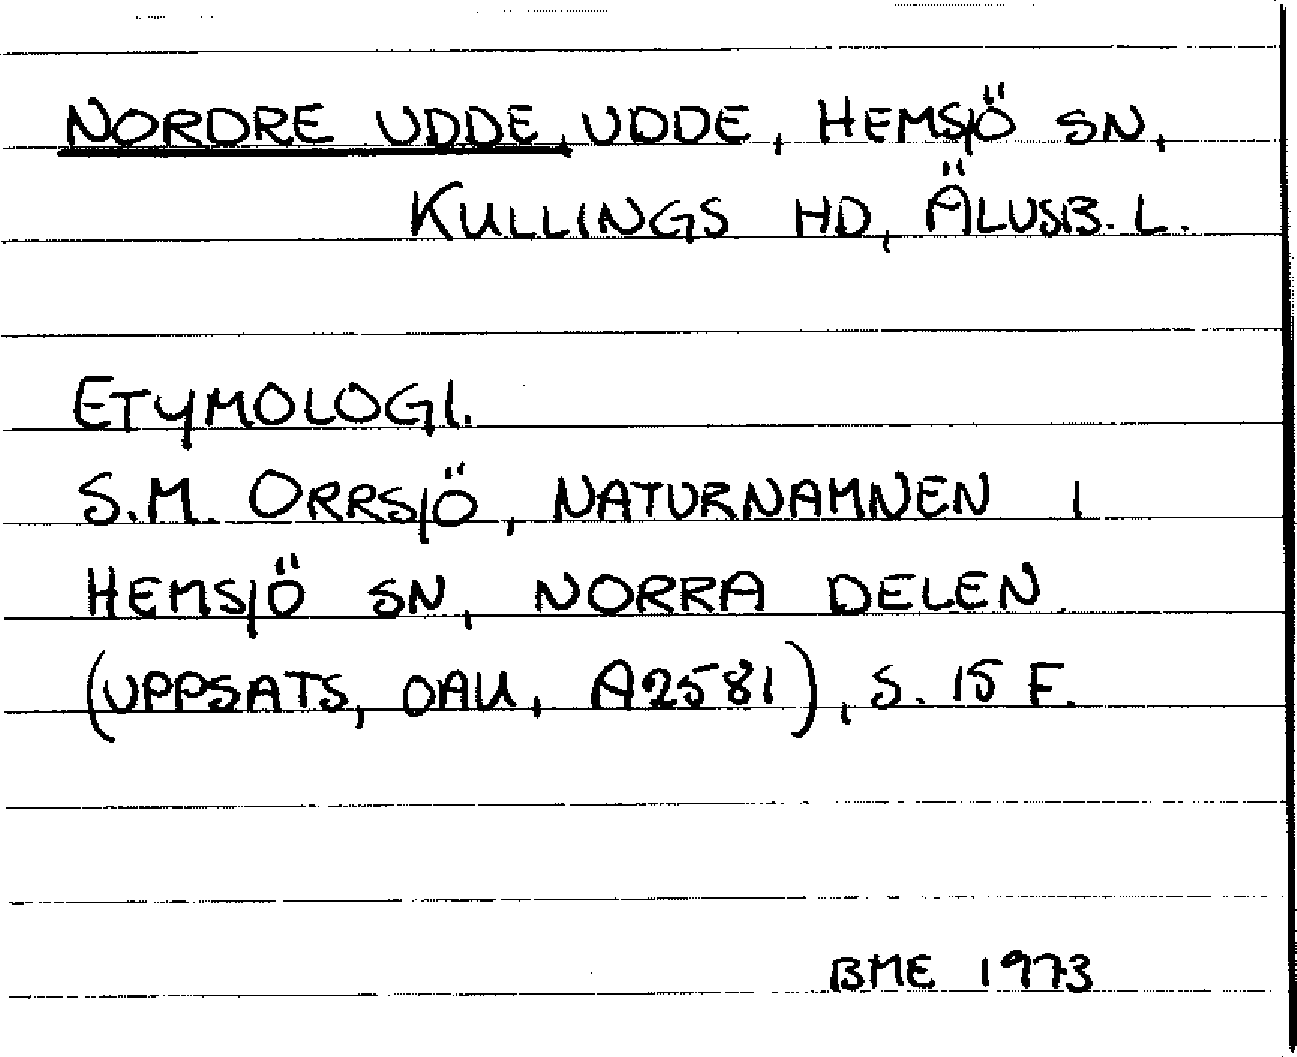 NORDRE UDDE, UDDE, HEMSJÖ SN,
KULLINGS HD, ÄLVSB. L.
ETYMOLOGI.
S.M. ORRSJÖ, NATURNAMNEN I
HEMSJÖ SN, NORRA DELEN.
(UPPSATS, OAU, A2581), S. 15 F.
BME 1973